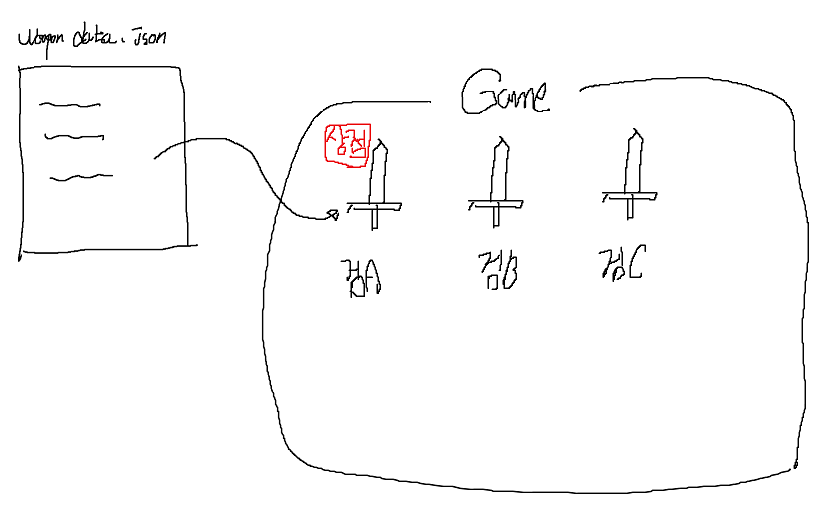 Weapon data.Json
Game
상점
검A
검B
검C